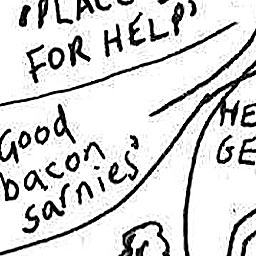 'PLACE
FOR HELP'
Good
bacon
sarnies'
HE
GE